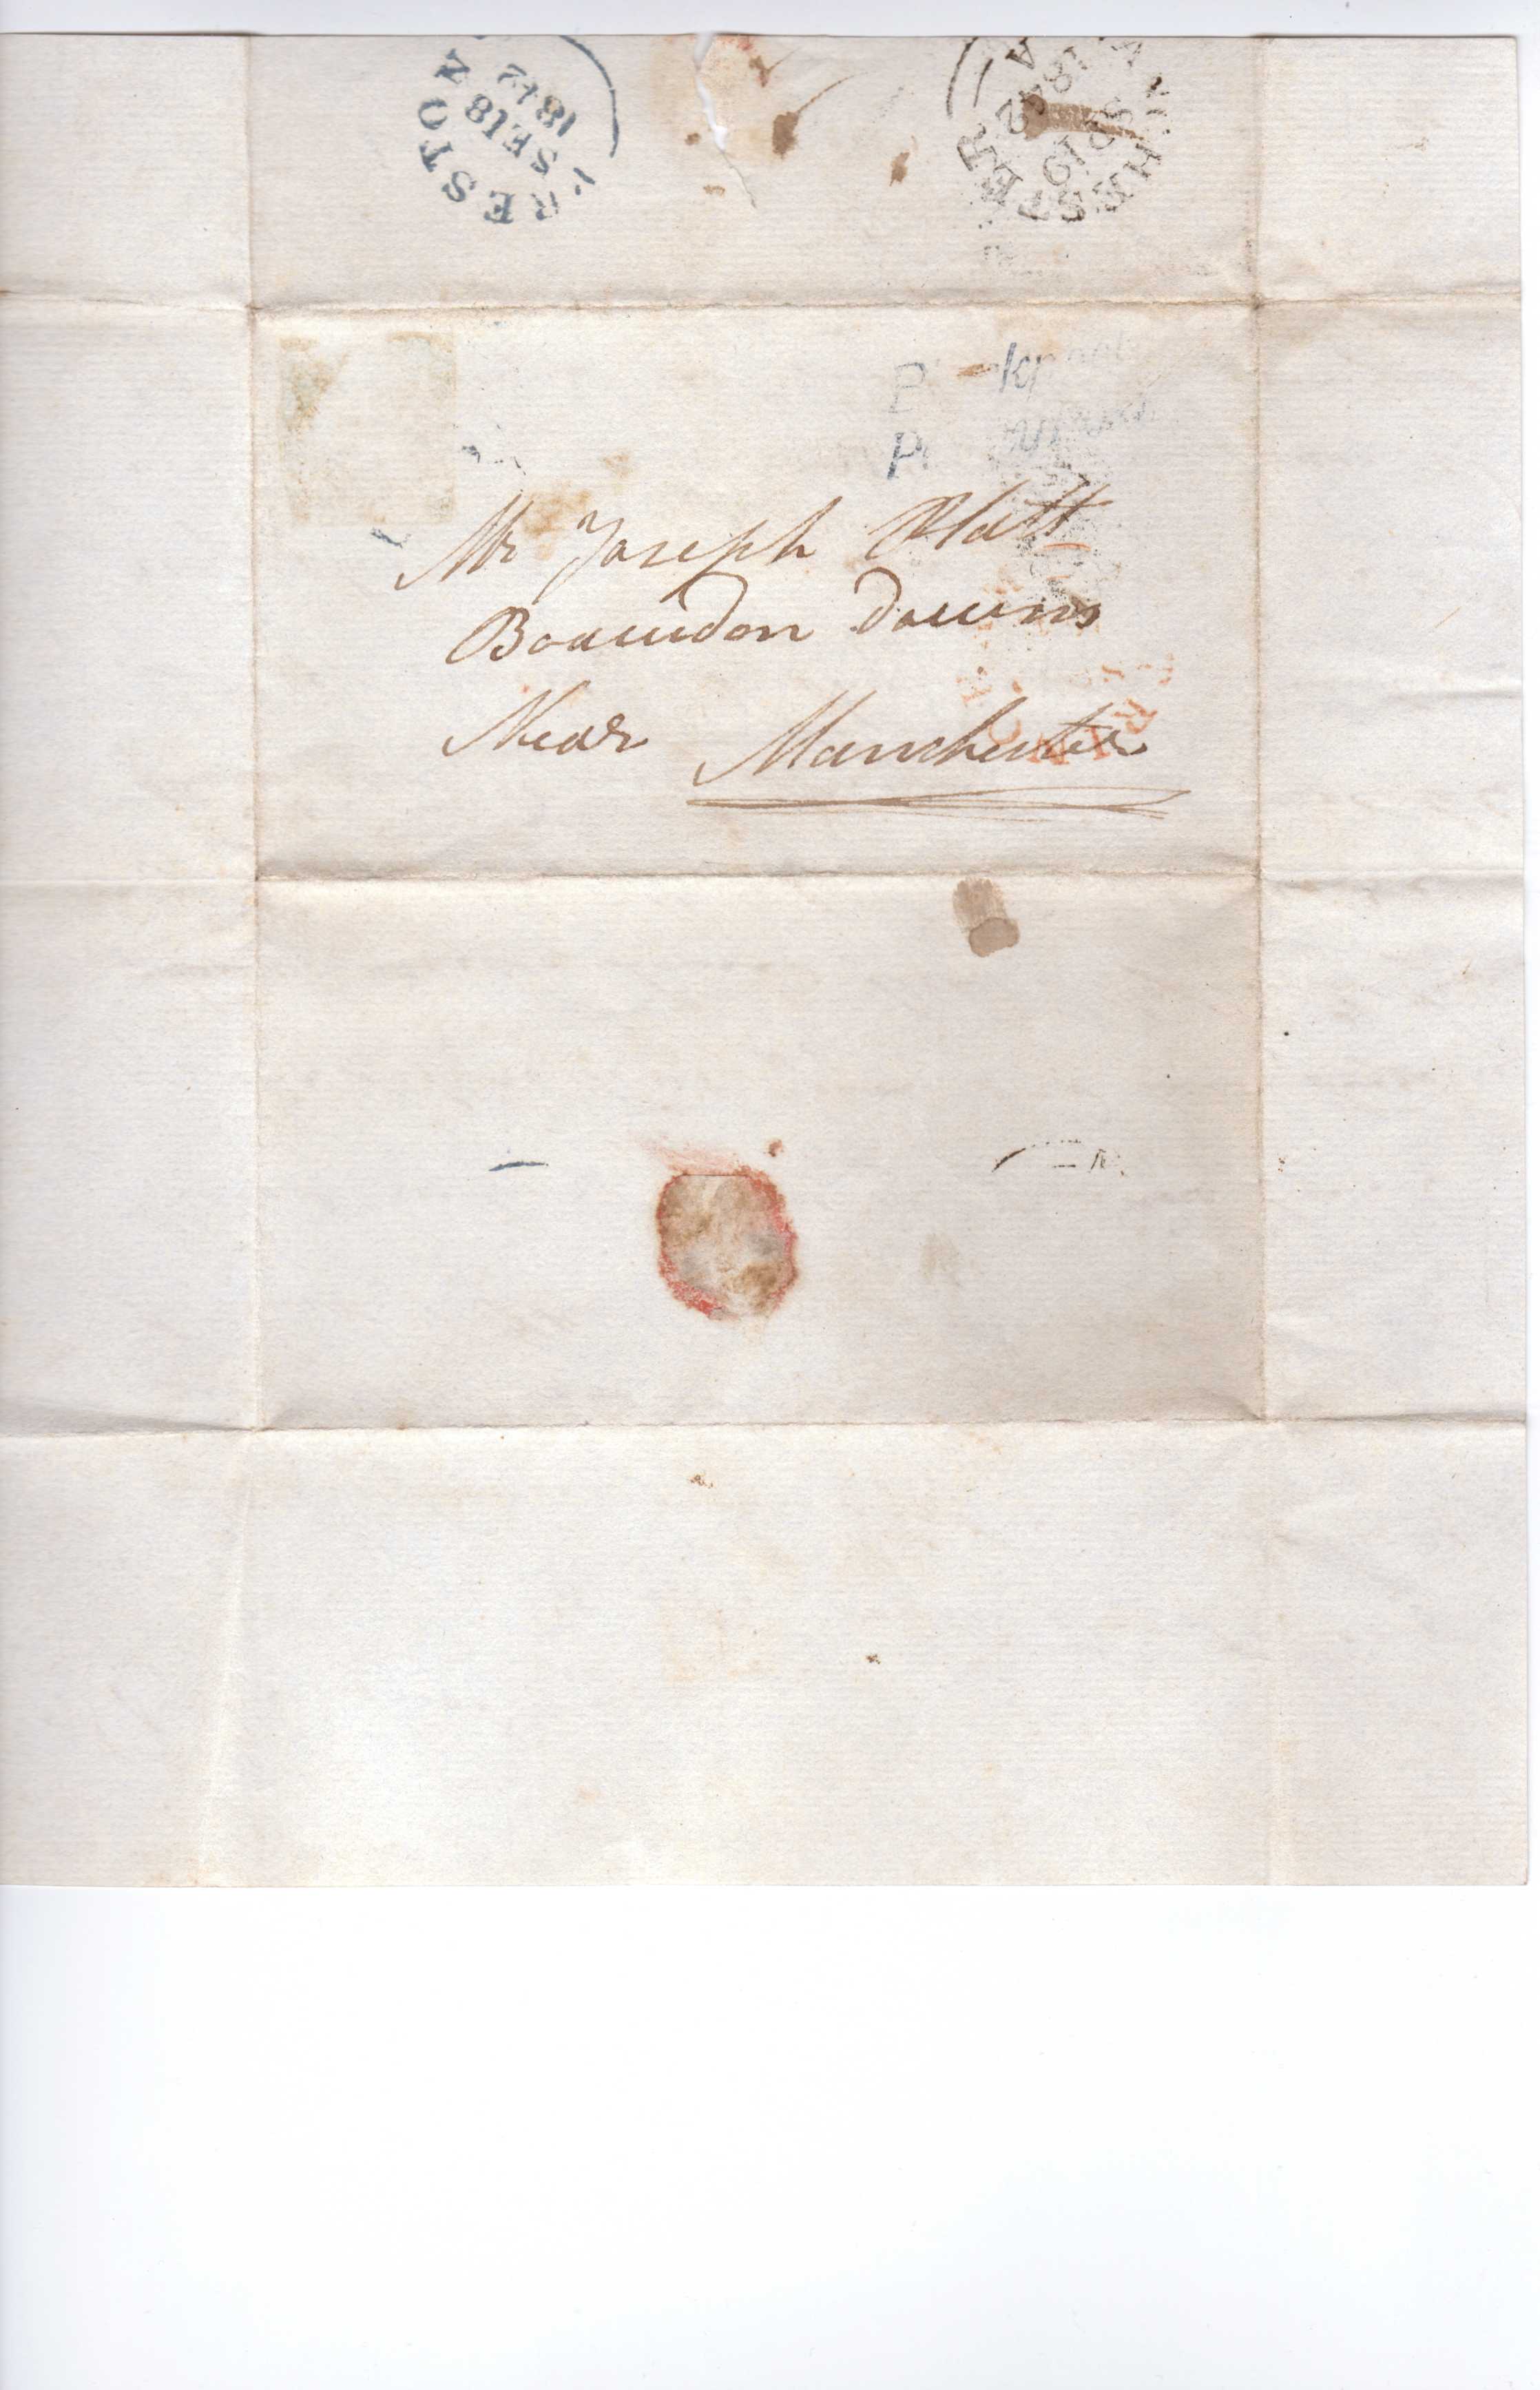 PRESTON
SE 18
1842
MANCHESTER
SP 19
1842
A
Mr Joseph Platt
Boawdon downs
Near Manchester